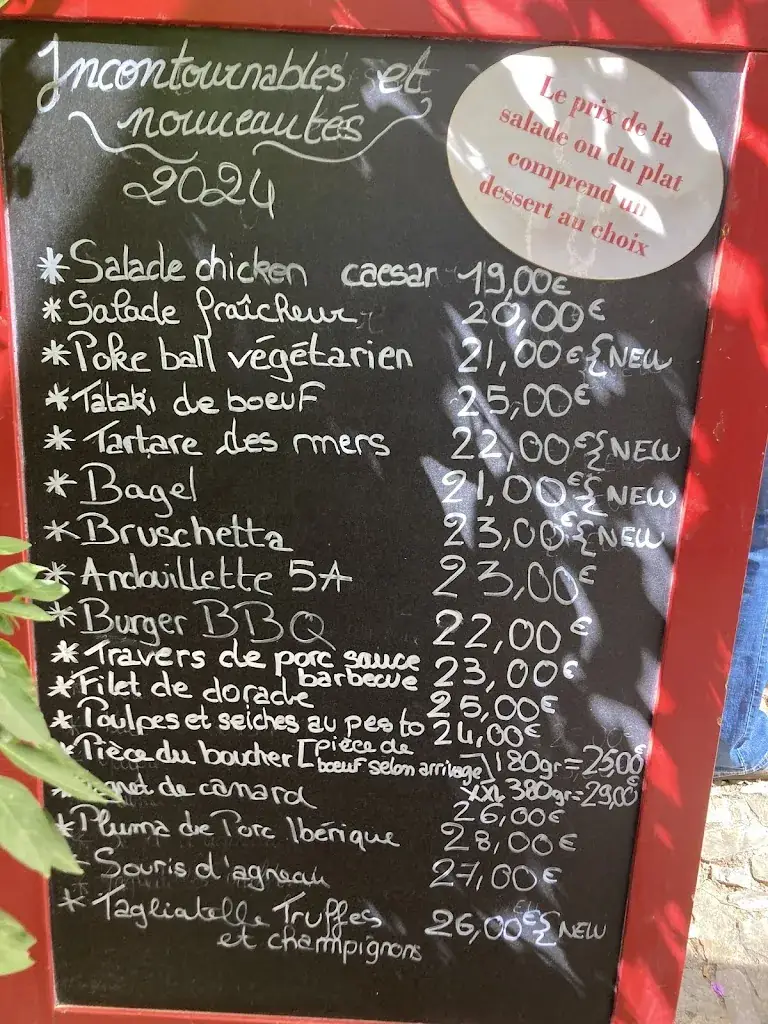 Incontournables et
nouveautés
2024
Le prix de la
salade ou du plat
comprend un
dessert au choix
* Salade chicken caesar 19,00€
* Salade fraîcheur 20,00€
* Poke ball végétarien 21,00€ { NEW
* Tataki de boeuf 25,00€
* Tartare des mers 22,00€ { NEW
* Bagel 21,00€ { NEW
* Bruschetta 23,00€ { NEW
* Andouillette 5A 23,00€
* Burger BBQ 22,00€
* Travers de porc sauce 23,00€
barbecue
* Filet de dorade 25,00€
* Poulpes et seiches au pesto 24,00€
* Pièce du boucher [pièce de
boeuf selon arrivage 180gr=25,00€
XXL 380gr=29,00€
de canard 26,00€
* Pluma de Porc Ibérique 28,00€
Souris d'agneau 27,00€
* Tagliatelle Truffes 26,00€ { NEW
et champignons